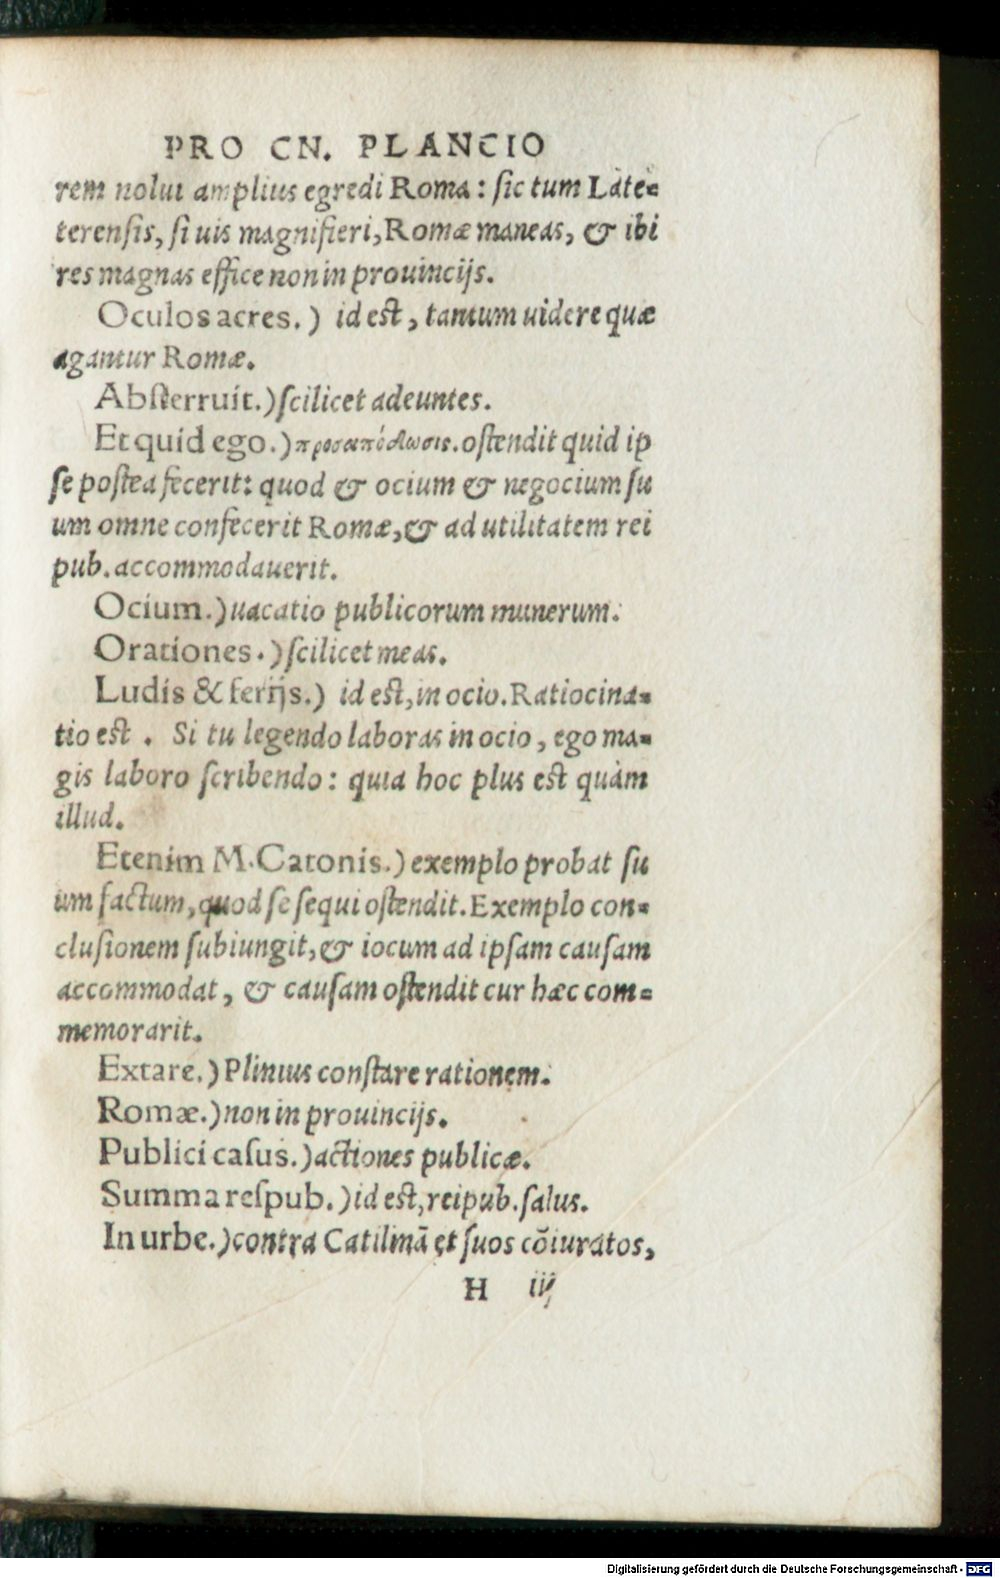 PRO CN. PLANCIO
rem nolui amplius egredi Roma: sic tum Late-
terensis, si uis magnifieri, Romæ maneas, & ibi
res magnas effice non in prouincijs.
Oculos acres.) id est, tantum uidere quæ
agantur Romæ.
Absterruit.) scilicet adeuntes.
Et quid ego.) προσαπόδωσις. ostendit quid ip
se postea fecerit: quod & ocium & negocium su
um omne confecerit Romæ, & ad utilitatem rei
pub. accommodauerit.
Ocium.) uacatio publicorum munerum.
Orationes.) scilicet meas.
Ludis & ferijs.) id est, in ocio. Ratiocina-
tio est. Si tu legendo laboras in ocio, ego ma-
gis laboro scribendo: quia hoc plus est quàm
illud.
Etenim M. Catonis.) exemplo probat su
um factum, quod se sequi ostendit. Exemplo con-
clusionem subiungit, & iocum ad ipsam causam
accommodat, & causam ostendit cur hæc com-
memorarit.
Extare.) Plinius constare rationem.
Romæ.) non in prouincijs.
Publici casus.) actiones publicæ.
Summa respub.) id est, reipub. salus.
In urbe.) contra Catilinā et suos cōiuratos,
H iij
Digitalisierung gefördert durch die Deutsche Forschungsgemeinschaft - DFG